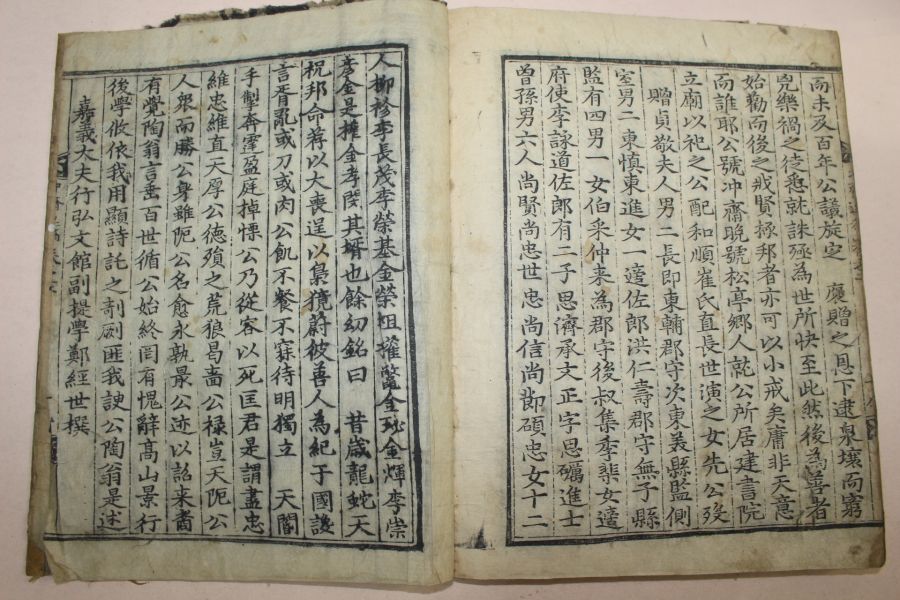 而未及百年公議旋定 褒贈之恩下逮泉壤而窮
兇樂禍之徒悉就誅殛為世所快至此然後為善者
始勸而後之戕賢掾邦者亦可以小戒矣庸非天意
而誰耶公號冲齋晩號松亭鄉人就公所居建書院
立廟以祀之公配和順崔氏直長世演之女先公歿
贈貞敬夫人男二長即東輔郡守次東美縣監側
室男二東慎東進女一適佐郎洪仁壽郡守無子縣
監有四男一女伯采仲来為郡守後叔集季棐女適
府使李詠道佐郎有二子思濟承文正字思礪進士
曾孫男六人尚賢尚忠世忠尚信尚節碩忠女十二
人柳袗李長茂李榮基金榮祖權鼈金珌金煇李崇
彥金是權金孝閔其婿也餘幼銘曰 昔歲龍蛇天
祝邦命荐以大喪逞以梟獍蔚彼善人為紀于國譤
言胥亂或刀或肉公飢不餐不寐待明獨立 天閽
手掣奔霆盈庭掉慄公乃從容以死匡君是謂盡忠
維忠維直天厚公德殞之荒狼曷嗇公禄豈天阨公
人衆而勝公身雖阨公名愈永孰最公迹以詔来裔
有覺陶翁言垂百世循公始終罔有愧辭高山景行
後學攸依我用顯詩託之剞劂匪我諛公陶翁是述
嘉義大夫行弘文館副提學鄭經世撰